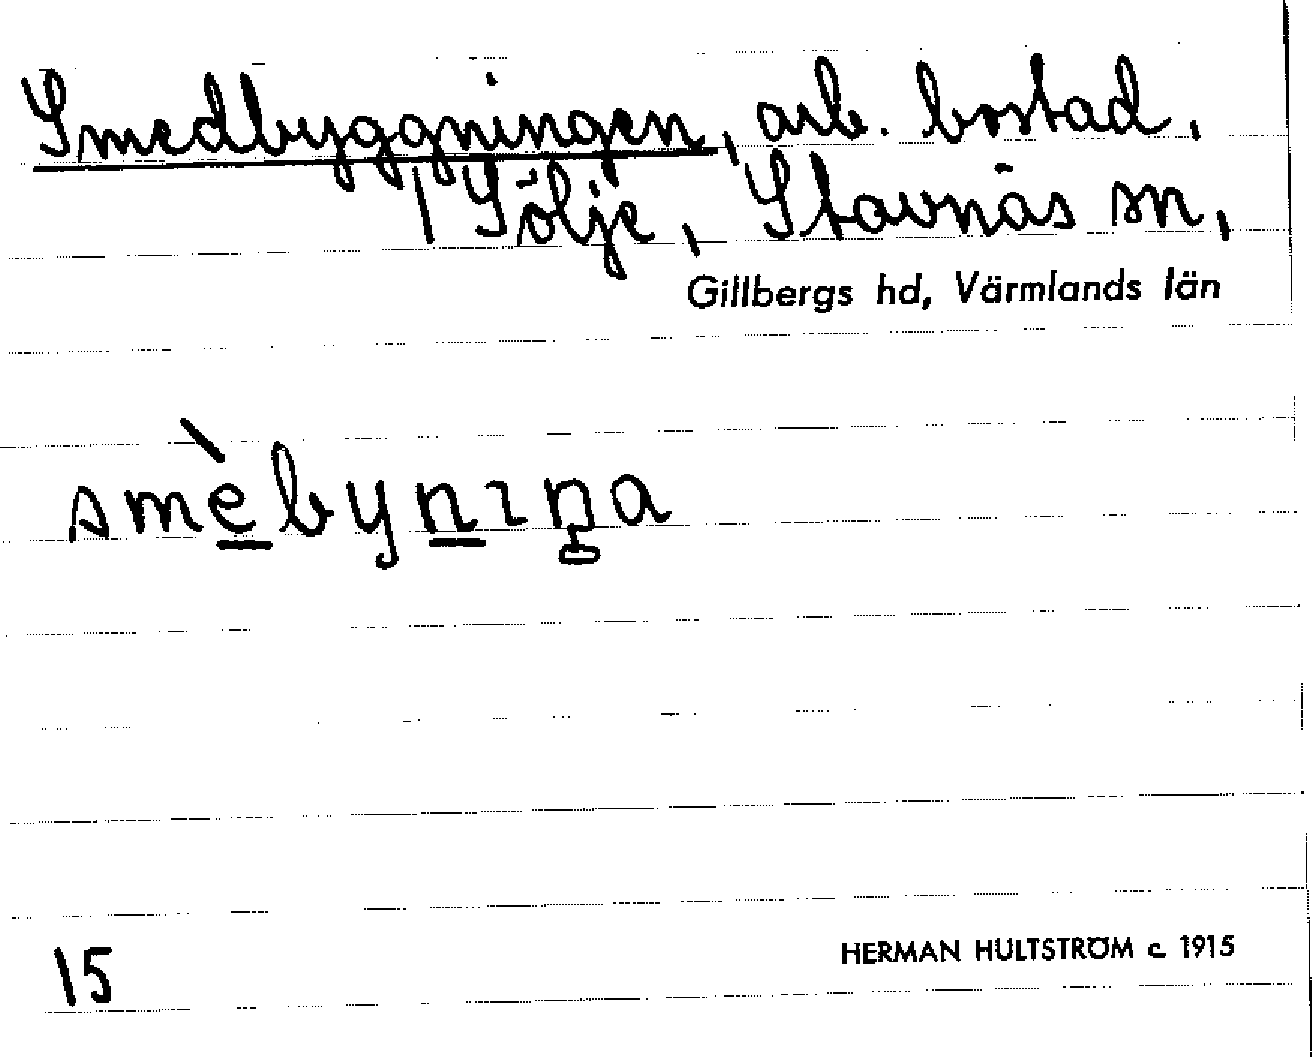 Smedbyggningen, arb. bostad,
1 Sölje, Stavnäs sn,
Gillbergs hd, Värmlands län
smèbynıŋa
15
HERMAN HULTSTRÖM c. 1915